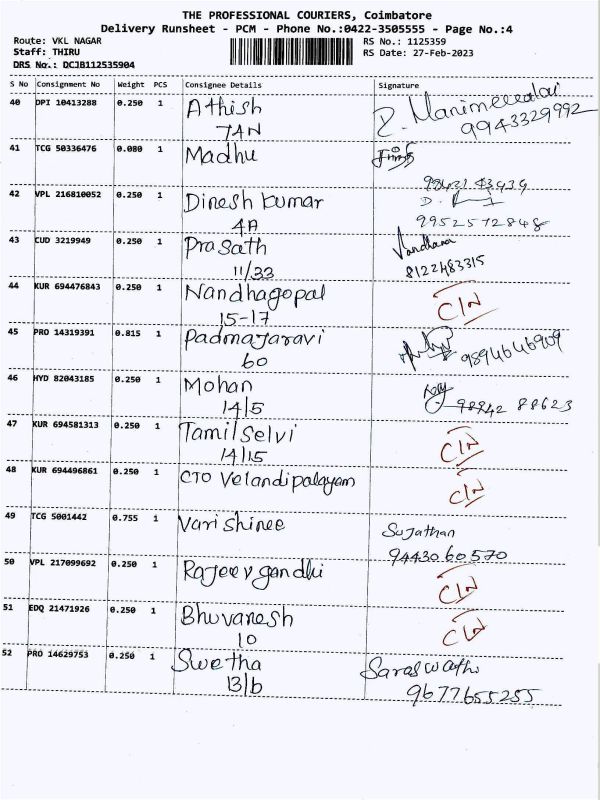 THE PROFESSIONAL COURIERS, Coimbatore
Delivery Runsheet - PCM - Phone No.:0422-3505555 - Page No.:4
Route: VKL NAGAR RS No.: 1125359
Staff: THIRU RS Date: 27-Feb-2023
DRS No.: DCJB112535904
S No Consignment No Weight PCS Consignee Details Signature
40 DPI 10413288 0.250 1 Athish R. Manimeealai
7AN 9943329992
41 TCG 50336476 0.080 1 Madhu
99421 43939
42 VPL 216810052 0.250 1 Dinesh kumar D.
4A 9952572848
43 CUD 3219949 0.250 1 Prasath Vandhana
11/33 8122483315
44 KUR 694476843 0.250 1 Nandhagopal C/N
15-17
45 PRO 14319391 0.815 1 Padmajaravi 9894646909
60
46 HYD 82043185 0.250 1 Mohan
14/5 98942 88623
47 KUR 694581313 0.250 1 Tamil Selvi C/N
14/15
48 KUR 694496861 0.250 1 CTO Velandipalayam C/N
49 TCG 5001442 0.755 1 Varishinee Sujathan
9443060570
50 VPL 217099692 0.250 1 Rajeev gandhi C/N
51 EDQ 21471926 0.250 1 Bhuvanesh C/N
10
52 PRO 14629753 0.250 1 Swetha Saraswathi
13/b 9677655255